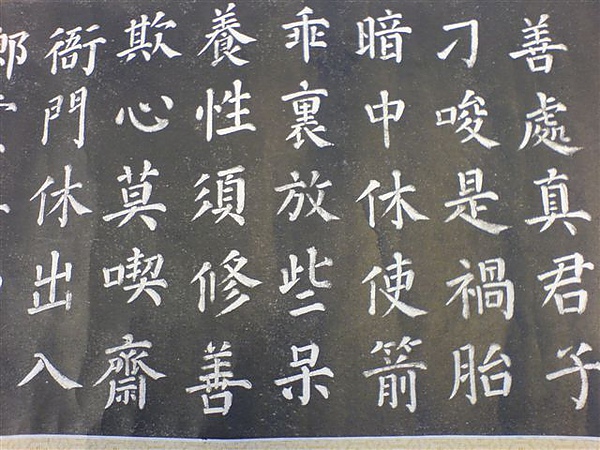 善處真君子
刁唆是禍胎
暗中休使箭
乖裏放些呆
養性須修善
欺心莫喫齋
衙門休出入